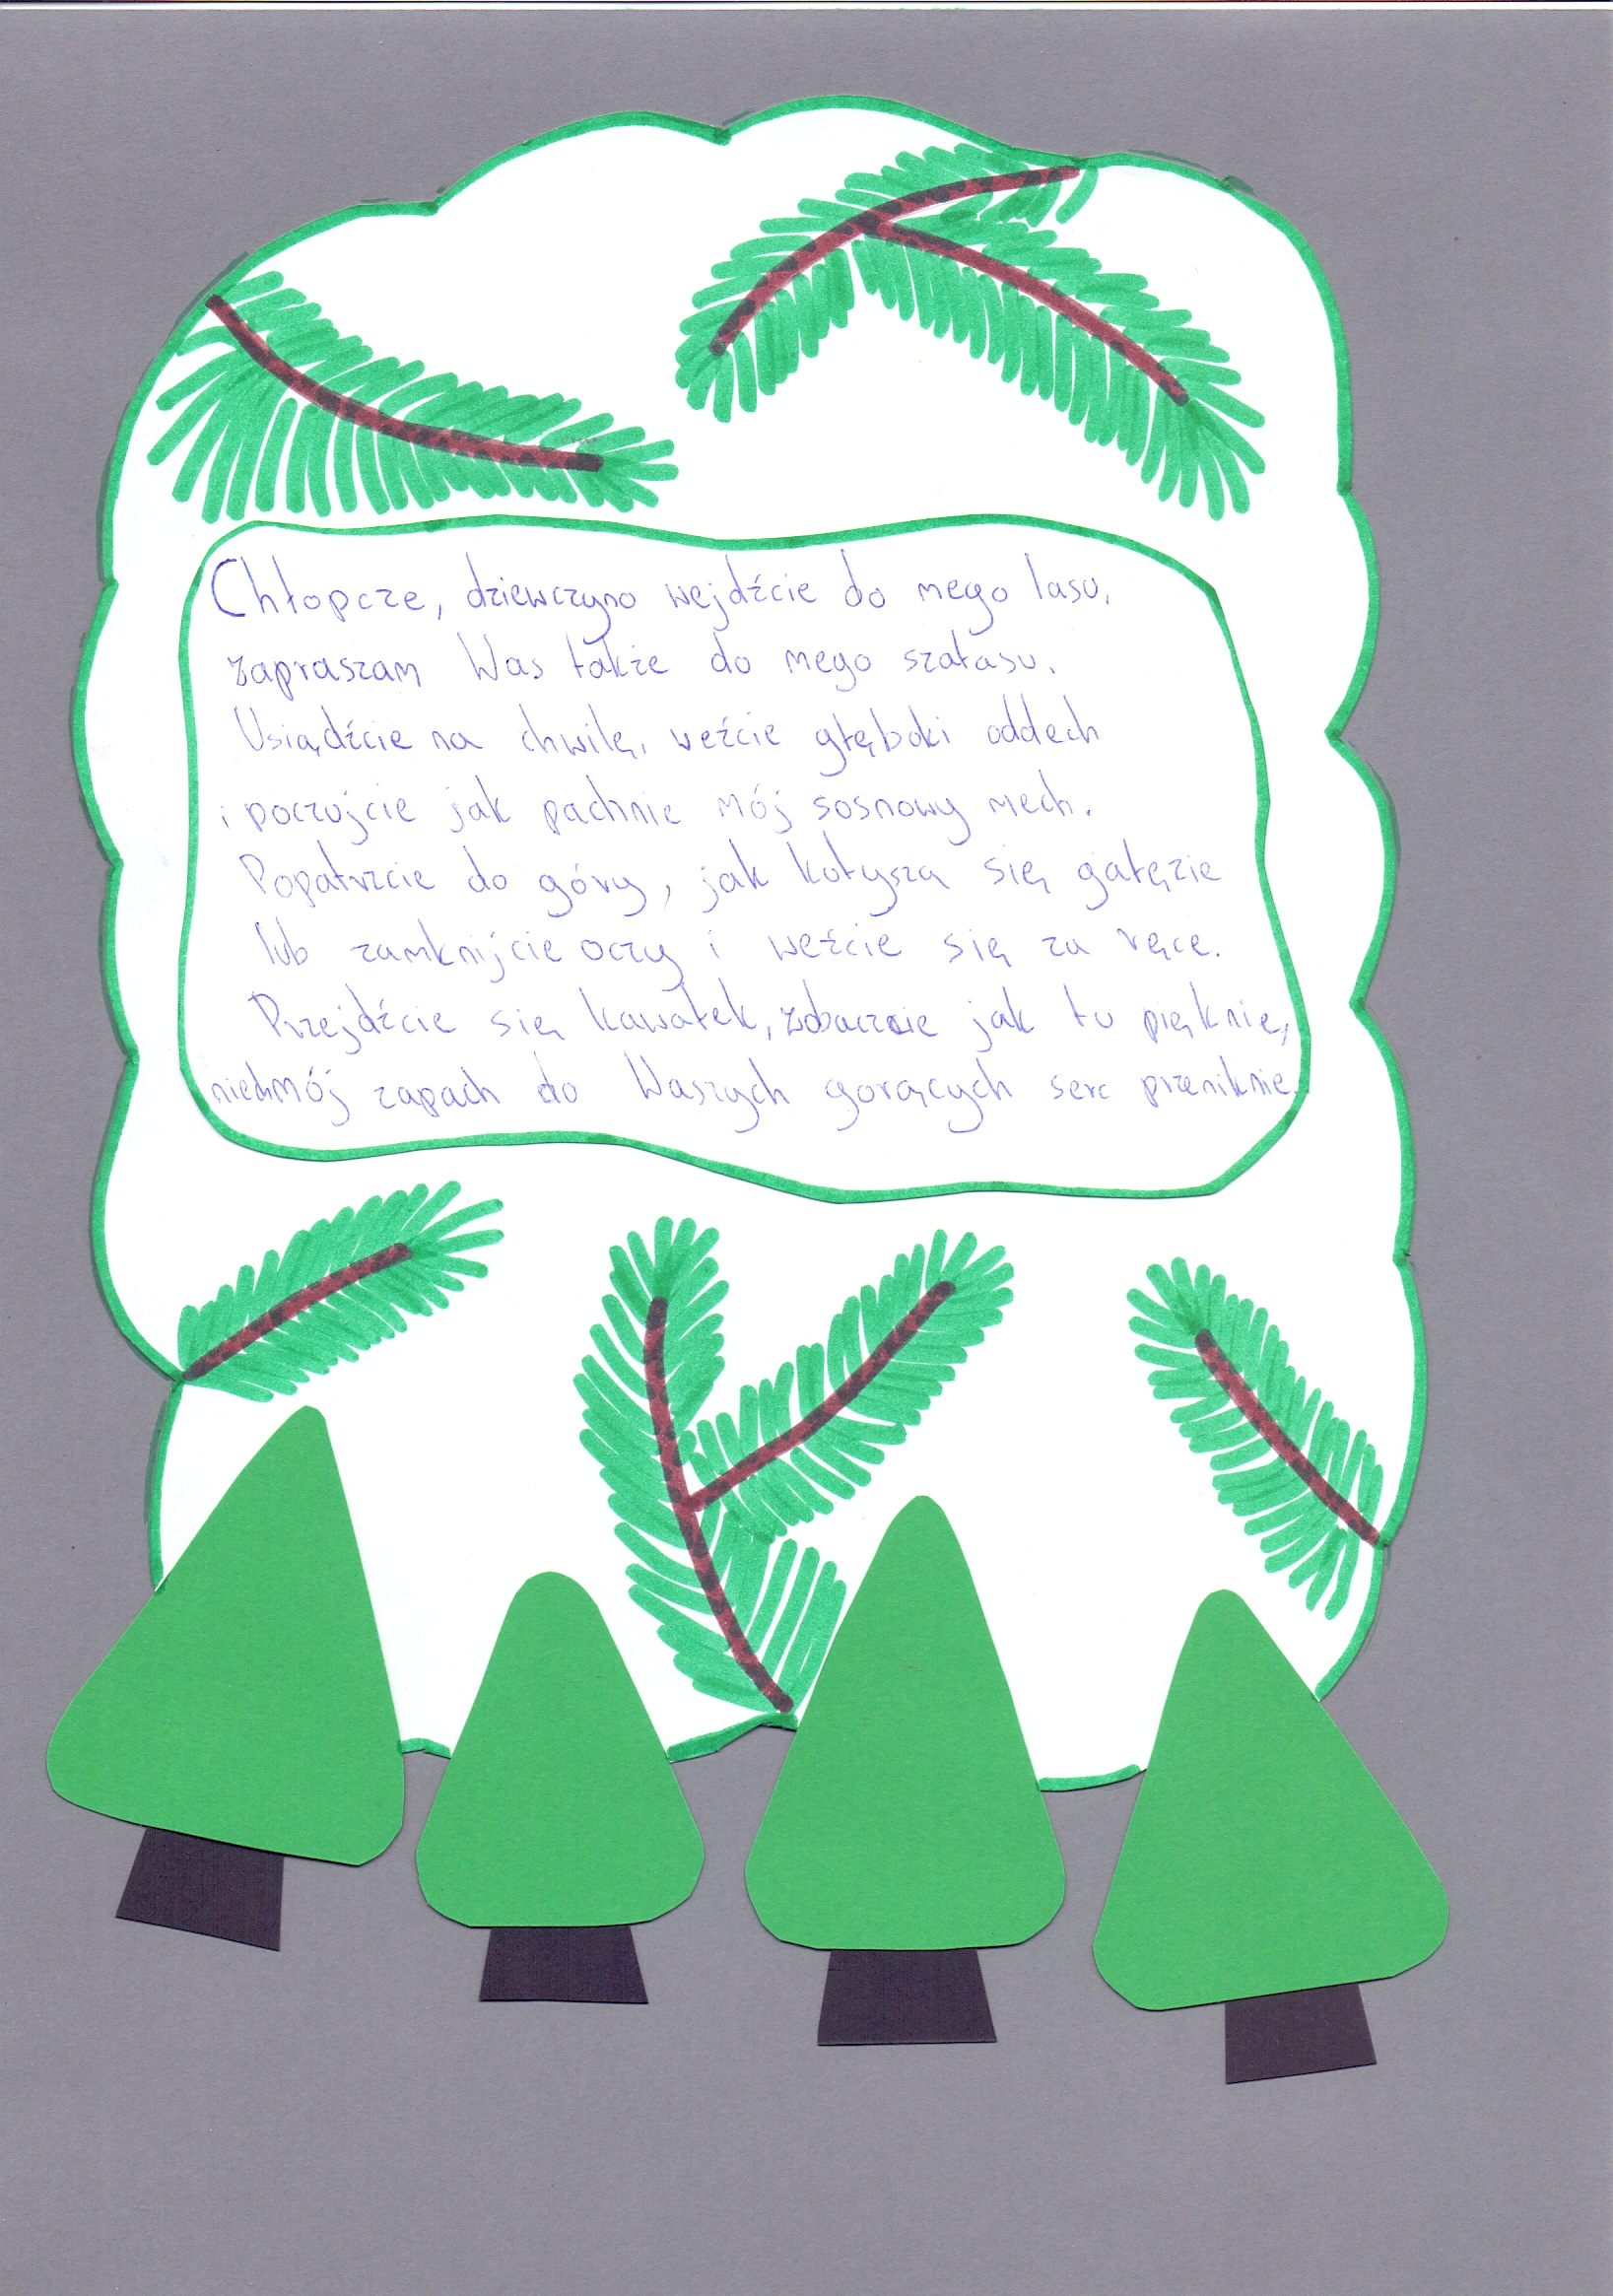 Chłopcze, dziewczyno wejdźcie do mego lasu,
zapraszam Was także do mego szałasu.
Usiądźcie na chwilę, weźcie głęboki oddech
i poczujcie jak pachnie mój sosnowy mech.
Popatrzcie do góry, jak kołyszą się gałęzie
lub zamknijcie oczy i weźcie się za ręce.
Przejdźcie się kawałek, zobaczcie jak tu pięknie,
niech mój zapach do Waszych gorących serc przeniknie.